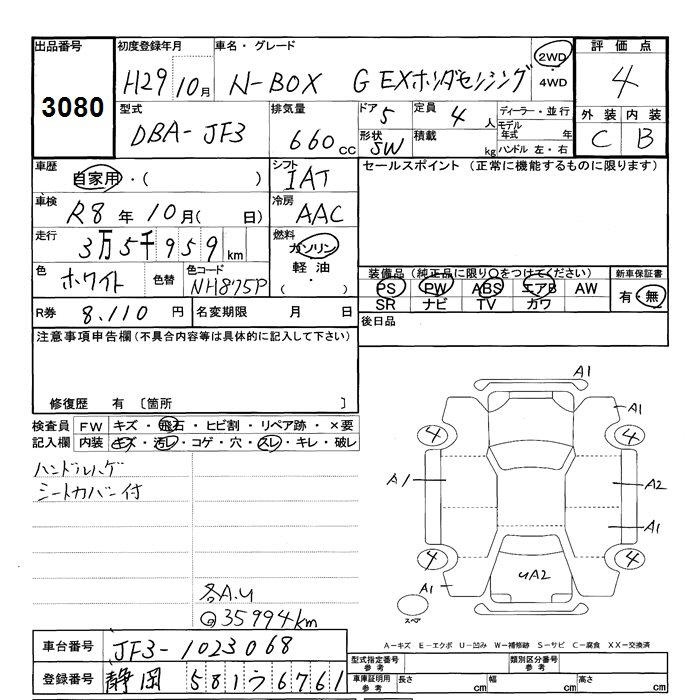 出品番号 初度登録年月 車名・グレード 2WD・4WD 評価点
3080 H29 10月 N-BOX G EXホンダセンシング 4
型式 DBA-JF3 排気量 660cc ドア 5 定員 4人 ディーラー・並行 外装 内装
形状 SW 積載 kg モデル年式 年 C B
ハンドル 左・右
車歴 自家用・( ) シフト IAT セールスポイント (正常に機能するものに限ります)
車検 R8年10月( 日) 冷房 AAC
走行 3万5千959km 燃料 ガソリン
軽油
( ・ )
色 ホワイト 色替 色コード NH875P
装備品 (純正品に限り○をつけてください) 新車保証書
PS PW ABS エアB AW 有・無
SR ナビ TV カワ
R券 8,110円 名変期限 月 日 後日品
注意事項申告欄(不具合内容等は具体的に記入して下さい)
修復歴 有 〔箇所 〕
検査員 FW キズ・飛石・ヒビ割・リペア跡・×要
記入欄 内装 キズ・汚レ・コゲ・穴・スレ・キレ・破レ
ハンドルハゲ
シートカバー付
各A.U
35994km
A1
A1
4 4
A1 A2
A1
4 4
A1 UA2
スペア
A-キズ E-エクボ U-凹み W-補修跡 S-サビ C-腐食 XX-交換済
車台番号 JF3-1023068 型式指定番号 参考 類別区分番号 参考
登録番号 静岡 581う6761 車庫証明用 参考 長さ cm 幅 cm 高さ cm